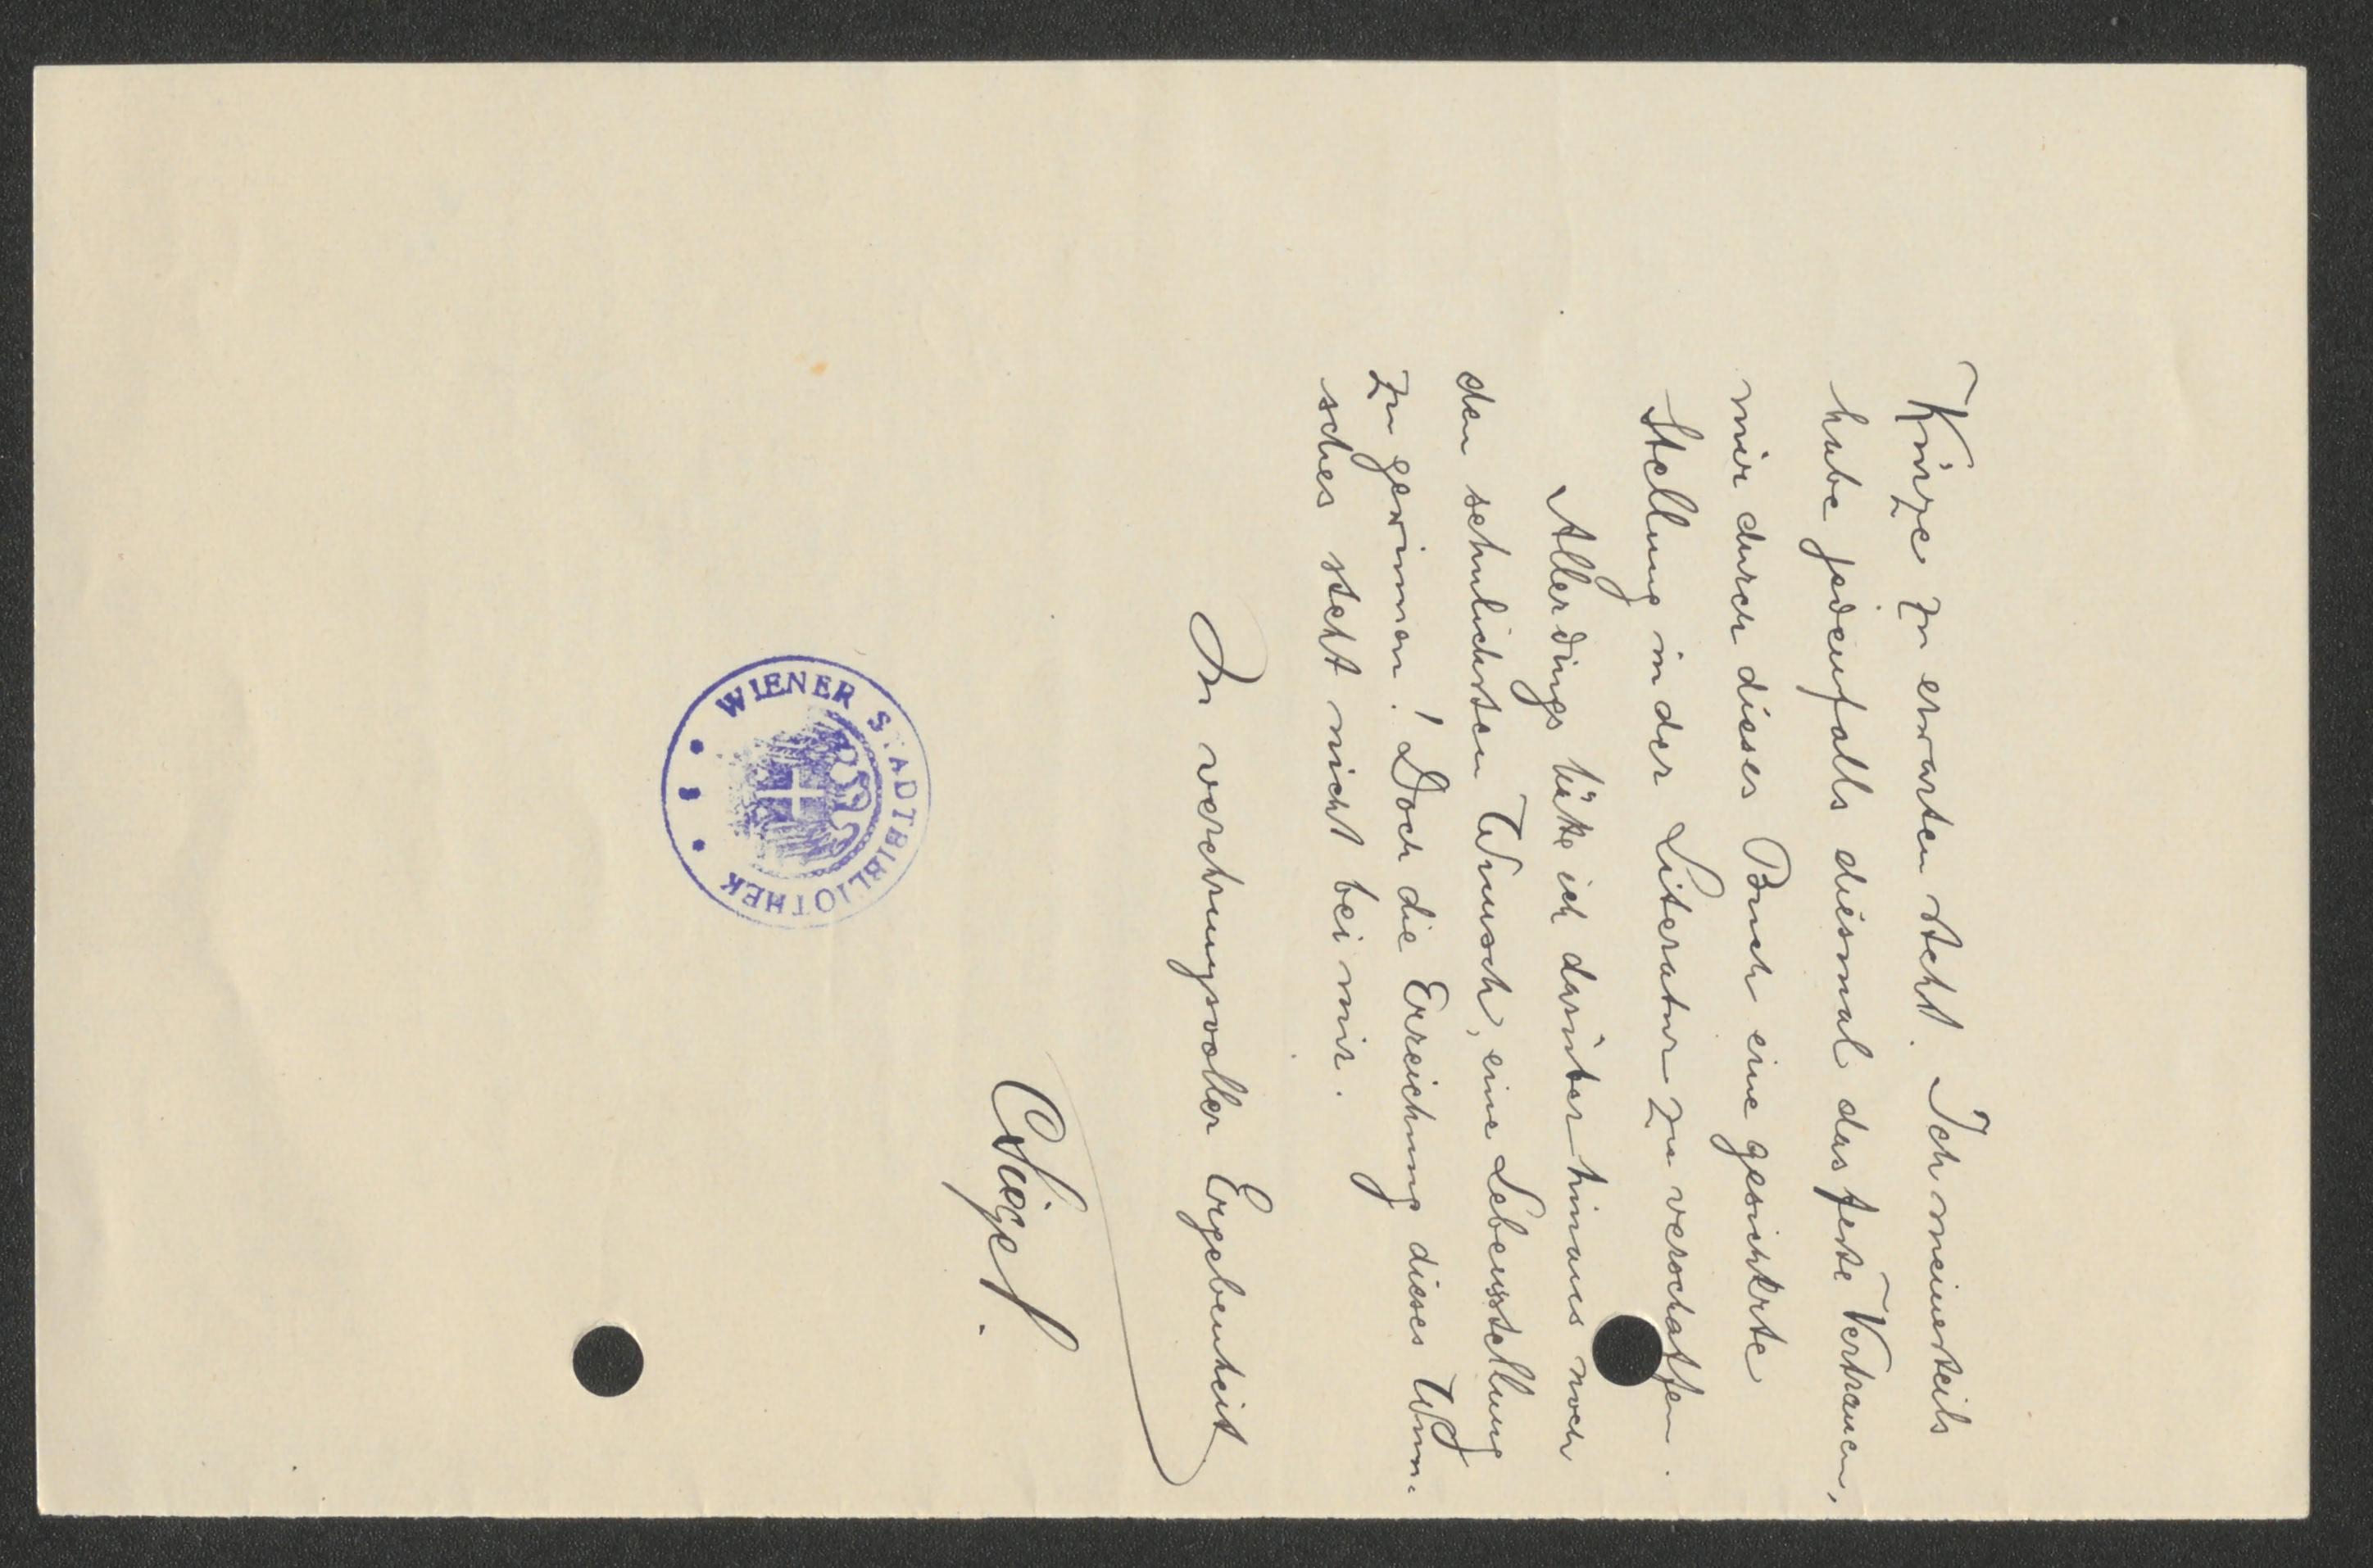 Kürze zu erwarten steht. Ich meinerseits
habe jedenfalls diesmal das feste Vertrauen,
mir durch dieses Buch eine gesicherte
Stellung in der Literatur zu verschaffen.
Allerdings hätte ich darüber hinaus noch
den sehnlichsten Wunsch, eine Lebensstellung
zu gewinnen! Doch die Erreichung dieses Wun-
sches steht nicht bei mir.
In verehrungsvoller Ergebenheit
WIENER STADTBIBLIOTHEK